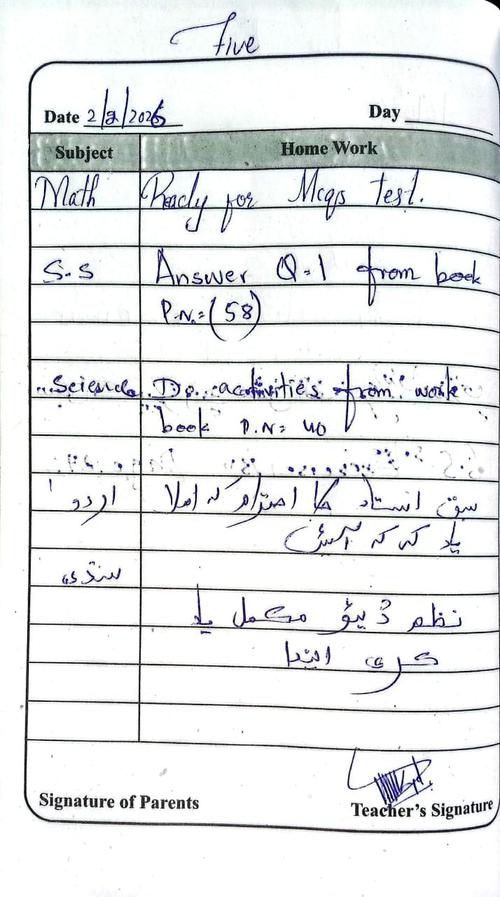 Five
Date 2/2/2026 Day
Subject Home Work
Math Ready for Mcqs test.
S.S Answer Q.1 from book
P.N.=(58)
Science Do activities from work
book P.N= 40
اردو سبق استاد کا احترام کہ املا
یاد کہ کہ آئیں
سنڌي
نظم ڏيئو مڪمل ياد
ڪري اينداِ
Signature of Parents Teacher's Signature